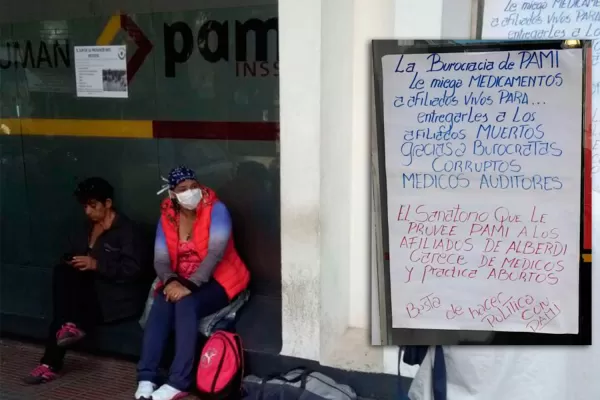 UMAN
pami
INSS
Le miega MEDICAMENTOS
a afiliados VIVOS PARA
entregarles a Los
La Burocracia de PAMI
Le miega MEDICAMENTOS
a afiliados VIVOS PARA...
entregarles a Los
afiliados MUERTOS
gracias a BUROCRATAS
CORRUPTOS
MEDICOS AUDITORES
EL Sanatorio QUE LE
PROVEE PAMI A LOS
AFILIADOS DE ALBERDI
Carece DE MEDICOS
y Practica ABORTOS
Basta de hacer POLITICA CON
PAMI